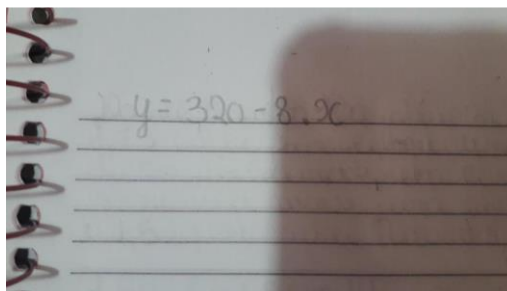 y = 320 - 8.x